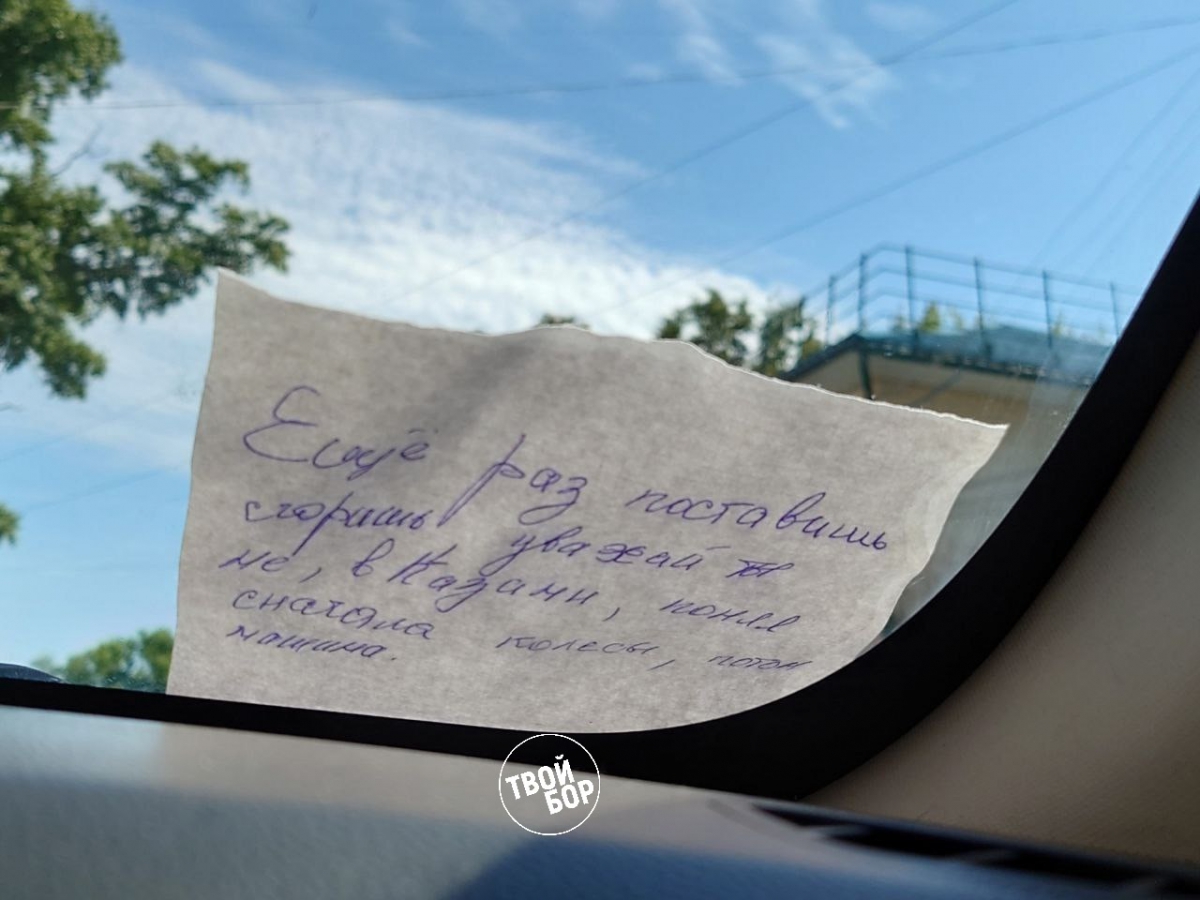 Ещё раз поставишь
сгоришь уважай ты
не, в Казани, понял
сначала колесы, потом
машина.
ТВОЙ
БОР